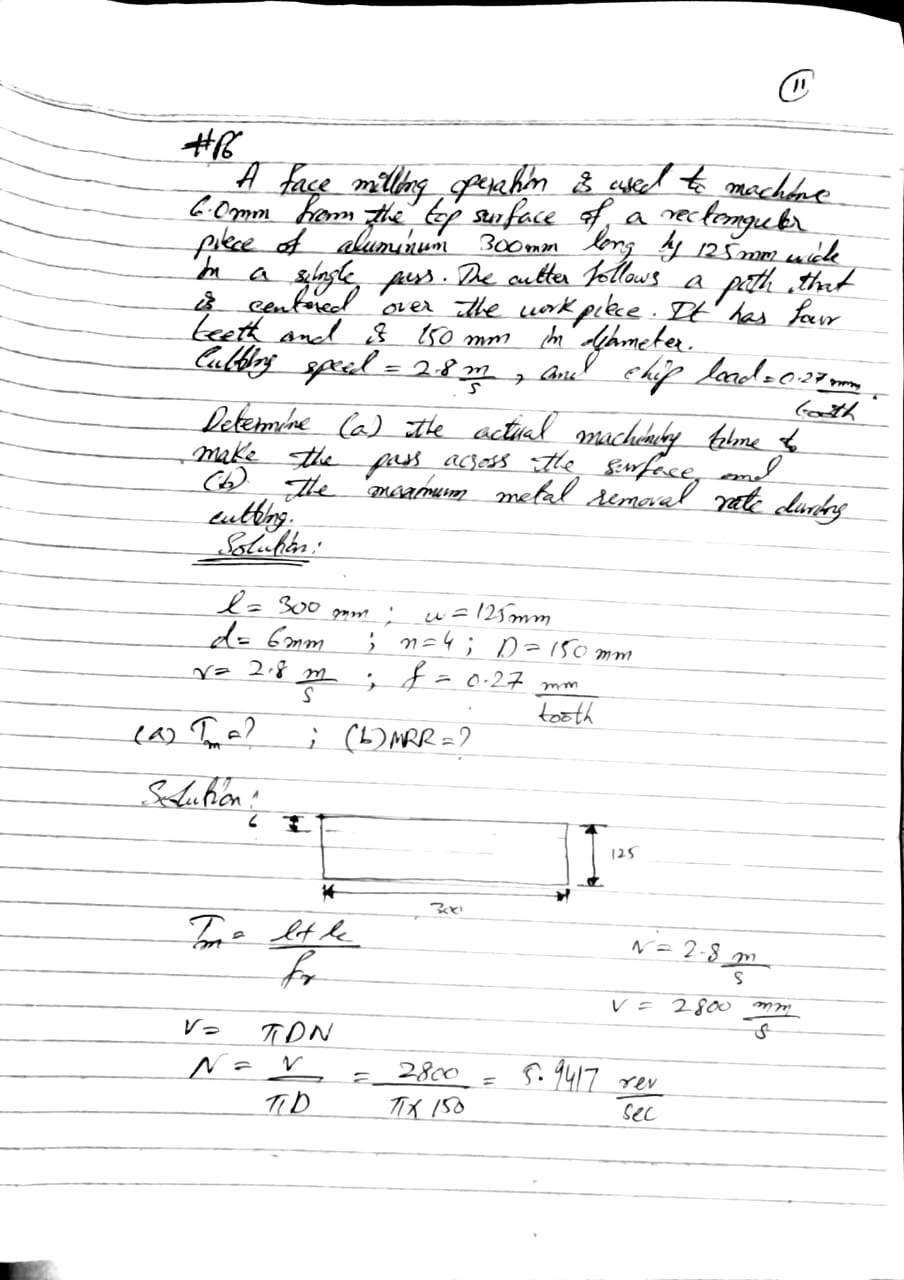 11
#P6
A face milling operation is used to machine
6.0mm from the top surface of a rectangular
piece of aluminum 300mm long by 125mm wide
in a single pass. The cutter follows a path that
is centered over the workpiece. It has four
teeth and is 150 mm in diameter.
Cutting speed = 2.8 m/s, and chip load = 0.27 mm/tooth.
Determine (a) the actual machining time to
make the pass across the surface and
(b) the maximum metal removal rate during
cutting.
Solution:
l = 300 mm ; w = 125mm
d = 6mm ; n=4 ; D = 150 mm
v = 2.8 m/s ; f = 0.27 mm/tooth
(a) Tm = ? ; (b) MRR = ?
Solution:
6
125
300
Tm = (l + le)/fr
v = 2.8 m/s
v = 2800 mm/s
v = πDN
N = v/πD = 2800/(π x 150) = 5.9417 rev/sec